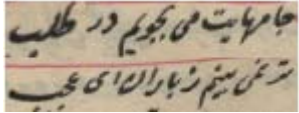 جامهایت می بجویم در طلب
تر نمی بینم ز باران ای عجب